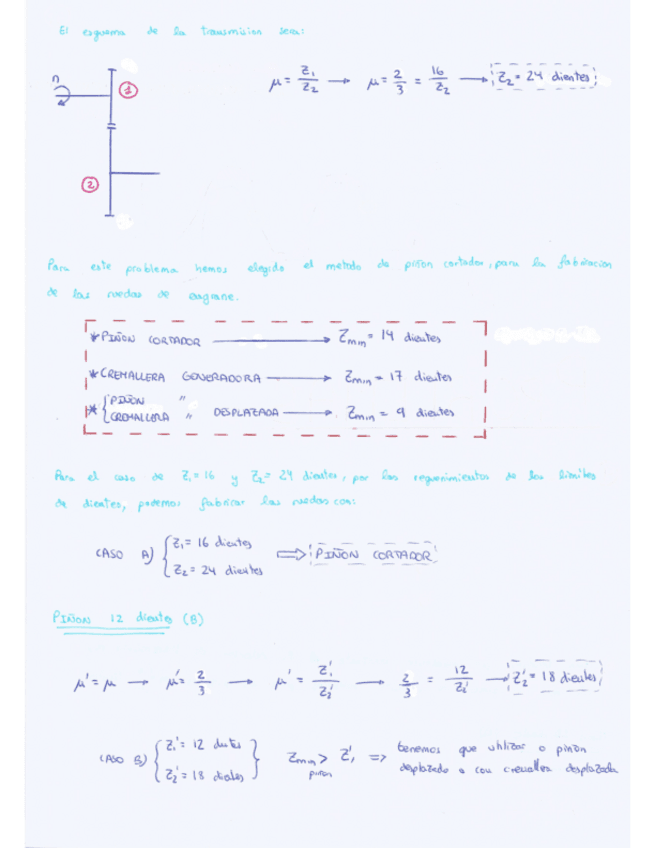 El esquema de la transmision sera:
n
1
2
μ = Z1/Z2 → μ = 2/3 = 16/Z2 → Z2 = 24 dientes
Para este problema hemos elegido el metodo de piñon cortador, para la fabricacion
de las ruedas de engrane.
* PIÑON CORTADOR → Zmin = 14 dientes
* CREMALLERA GENERADORA → Zmin = 17 dientes
* { PIÑON "
CREMALLERA " DESPLAZADA → Zmin = 9 dientes
Para el caso de Z1 = 16 y Z2 = 24 dientes, por los requerimientos de los limites
de dientes, podemos fabricar las ruedas con:
CASO A) { Z1 = 16 dientes
Z2 = 24 dientes ⇒ PIÑON CORTADOR
PIÑON 12 dientes (B)
μ' = μ → μ' = 2/3 → μ' = Z1'/Z2' → 2/3 = 12/Z2' → Z2' = 18 dientes
CASO B) { Z1' = 12 dientes
Z2' = 18 dientes } Zmin piñon > Z1' => tenemos que utilizar o piñon
desplazado o con cremallera desplazada